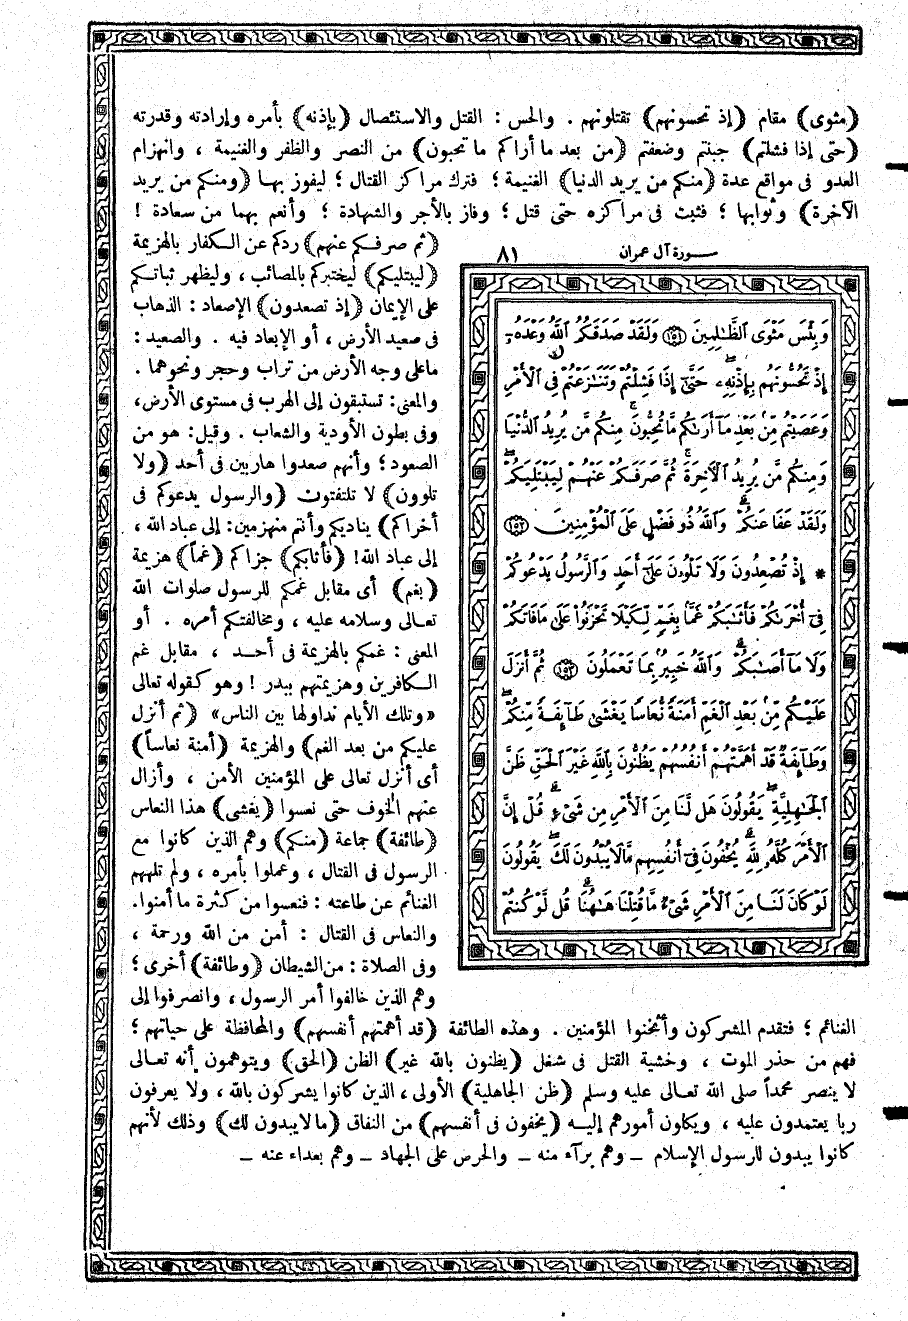 (مثوى) مقام (إذ تحسونهم) تقتلونهم . والحس : القتل والاستئصال (بإذنه) بأمره وإرادته وقدرته
(حتى إذا فشلتم) جبنتم وضعفتم (من بعد ما أراكم ما تحبون) من النصر والظفر والغنيمة ، وانهزام
العدو فى مواقع عدة (منكم من يريد الدنيا) الغنيمة ؛ فترك مراكز القتال ؛ ليفوز بهـا (ومنكم من يريد
الآخرة) وثوابها ؛ فثبت فى مراكزه حتى قتل ؛ وفاز بالأجر والشهادة ؛ وأنعم بهما من سعادة !
(ثم صرفكم عنهم) ردكم عن الكفار بالهزيمة
(ليبتليكم) ليختبركم بالمصائب ، وليظهر ثباتكم
على الإيمان (إذ تصعدون) الإصعاد : الذهاب
فى صعيد الأرض ، أو الإبعاد فيه . والصعيد :
ماعلى وجه الأرض من تراب وحجر ونحوهما .
والمعنى: تستبقون إلى الهرب فى مستوى الأرض،
وفى بطون الأودية والشعاب . وقيل: هو من
الصعود ؛ وأنهم صعدوا هاربين فى أحد (ولا
تلوون) لا تلتفتون (والرسول يدعوكم فى
أخراكم) يناديكم وأنتم منهزمين: إلى عباد الله ،
إلى عباد الله! (فأثابكم) جزاكم (غماً) هزيمة
(بغم) أى مقابل غمكم للرسول صلوات الله
تعـالى وسلامه عليه ، ومخالفتكم أمره . أو
المعنى : غمكم بالهزيمة فى أحـد ، مقابل غم
الكافرين وهزيمتهم ببدر ! وهو كقوله تعالى
«وتلك الأيام نداولها بين الناس» (ثم أنزل
عليكم من بعد الغم) والهزيمة (أمنة نعاساً)
أى أنزل تعالى على المؤمنين الأمن ، وأزال
عنهم الخوف حتى نعسوا (يغشى) هذا النعاس
(طائفة) جماعة (منكم) وهم الذين كانوا مع
الرسول فى القتال ، وعملوا بأمره ، ولم تلههم
الغنائم عن طاعته : فنعسوا من كثرة ما أمنوا.
والنعاس فى القتال : أمن من الله ورحمة ،
وفى الصلاة : من الشيطان (وطائفة) أخرى ؛
وهم الذين خالفوا أمر الرسول ، وانصرفوا إلى
سـورة آل عمران ٨١
وَبِئْسَ مَثْوَى ٱلظَّـٰلِمِينَ ﴿١٥١﴾ وَلَقَدْ صَدَقَكُمُ ٱللَّهُ وَعْدَهُۥٓ
إِذْ تَحُسُّونَهُم بِإِذْنِهِۦ ۖ حَتَّىٰٓ إِذَا فَشِلْتُمْ وَتَنَـٰزَعْتُمْ فِى ٱلْأَمْرِ
وَعَصَيْتُم مِّنۢ بَعْدِ مَآ أَرَىٰكُم مَّا تُحِبُّونَ ۚ مِنكُم مَّن يُرِيدُ ٱلدُّنْيَا
وَمِنكُم مَّن يُرِيدُ ٱلْآخِرَةَ ۚ ثُمَّ صَرَفَكُمْ عَنْهُمْ لِيَبْتَلِيَكُمْ ۖ
وَلَقَدْ عَفَا عَنكُمْ ۗ وَٱللَّهُ ذُو فَضْلٍ عَلَى ٱلْمُؤْمِنِينَ ﴿١٥٢﴾
* إِذْ تُصْعِدُونَ وَلَا تَلْوُۥنَ عَلَىٰٓ أَحَدٍ وَٱلرَّسُولُ يَدْعُوكُمْ
فِىٓ أُخْرَىٰكُمْ فَأَثَـٰبَكُمْ غَمًّۢا بِغَمٍّ لِّكَيْلَا تَحْزَنُوا۟ عَلَىٰ مَا فَاتَكُمْ
وَلَا مَآ أَصَـٰبَكُمْ ۗ وَٱللَّهُ خَبِيرٌۢ بِمَا تَعْمَلُونَ ﴿١٥٣﴾ ثُمَّ أَنزَلَ
عَلَيْكُم مِّنۢ بَعْدِ ٱلْغَمِّ أَمَنَةً نُّعَاسًا يَغْشَىٰ طَآئِفَةً مِّنكُمْ ۖ
وَطَآئِفَةٌ قَدْ أَهَمَّتْهُمْ أَنفُسُهُمْ يَظُنُّونَ بِٱللَّهِ غَيْرَ ٱلْحَقِّ ظَنَّ
ٱلْجَـٰهِلِيَّةِ ۖ يَقُولُونَ هَل لَّنَا مِنَ ٱلْأَمْرِ مِن شَىْءٍ ۗ قُلْ إِنَّ
ٱلْأَمْرَ كُلَّهُۥ لِلَّهِ ۗ يُخْفُونَ فِىٓ أَنفُسِهِم مَّا لَا يُبْدُونَ لَكَ ۖ يَقُولُونَ
لَوْ كَانَ لَنَا مِنَ ٱلْأَمْرِ شَىْءٌ مَّا قُتِلْنَا هَـٰهُنَا ۗ قُل لَّوْ كُنتُمْ
الغنائم ؛ فتقدم المشركون وأثخنوا المؤمنين . وهذه الطائفة (قد أهمتهم أنفسهم) والمحافظة على حياتهم ؛
فهم من حذر الموت ، وخشية القتل فى شغل (يظنون بالله غير) الظن (الحق) ويتوهمون أنه تعـالى
لا ينصر محمداً صلى الله تعـالى عليه وسلم (ظن الجاهلية) الأولى ، الذين كانوا يشركون بالله ، ولا يعرفون
ربا يعتمدون عليه ، ويكلون أمورهم إليـه (يخفون فى أنفسهم) من النفاق (ما لا يبدون لك) وذلك لأنهم
كانوا يبدون للرسول الإسلام ــ وهم برآء منه ــ والحرص على الجهاد ــ وهم بعداء عنه ــ